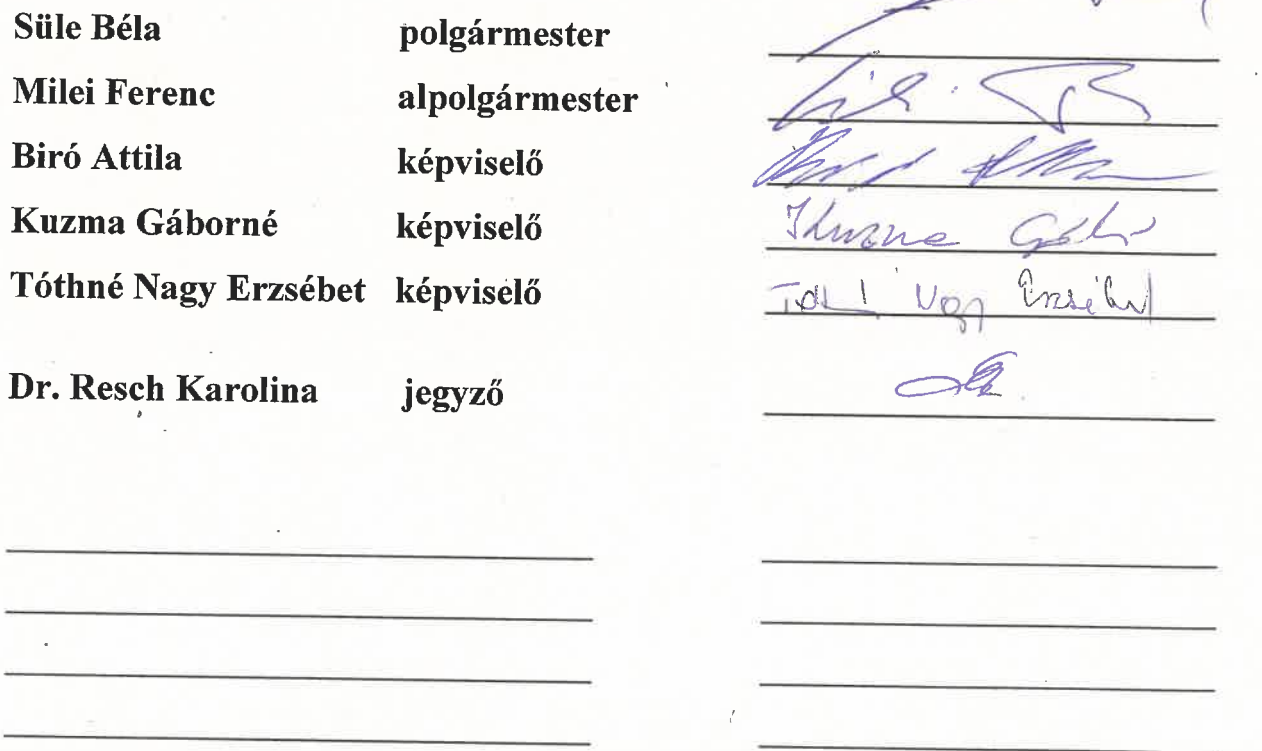 Süle Béla polgármester
Milei Ferenc alpolgármester
Biró Attila képviselő
Kuzma Gáborné képviselő Kuzma
Tóthné Nagy Erzsébet képviselő Nagy Erzsébet
Dr. Resch Karolina jegyző